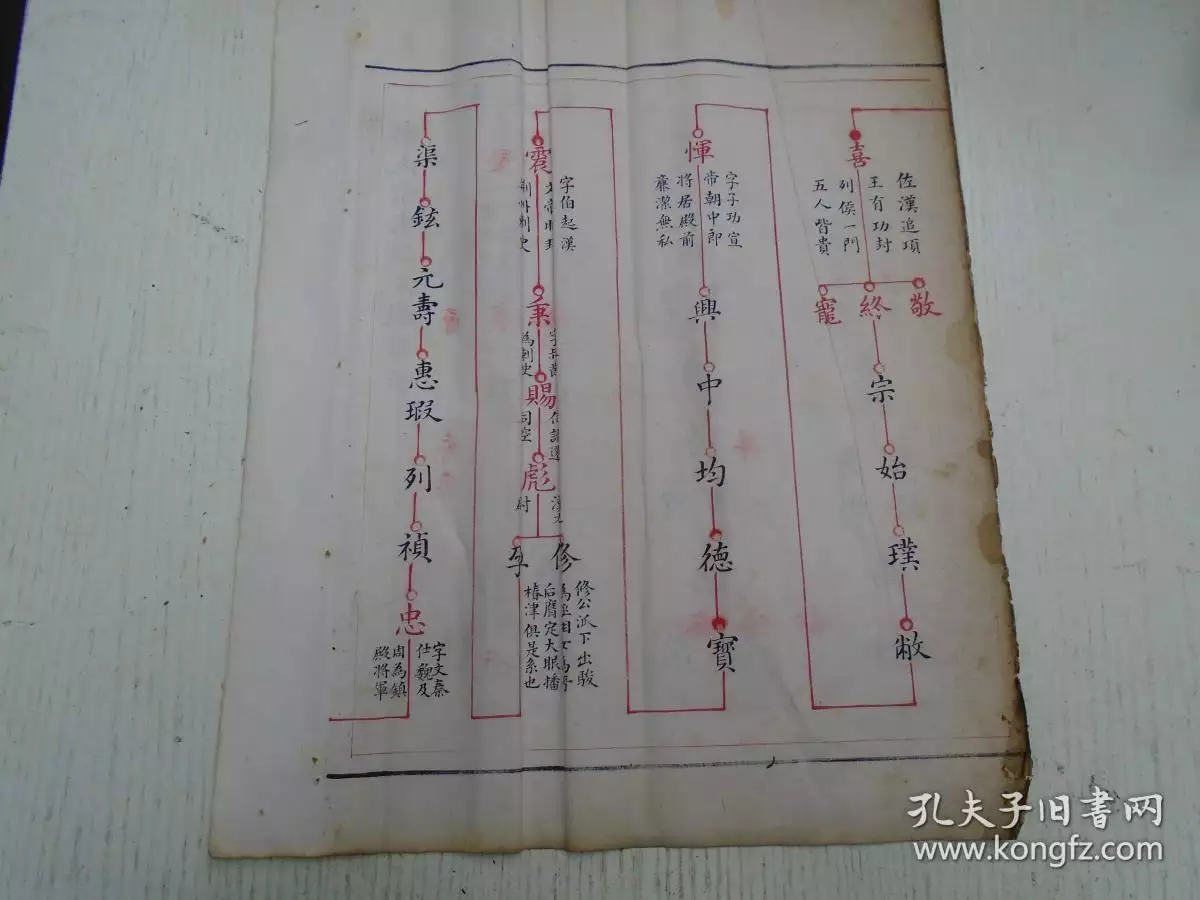 喜
佐漢追項
王有功封
列侯一門
五人皆貴
敬
終
寵
宗
始
璞
敝
惲
字子功宣
帝朝中郎
將居殿前
廉潔無私
興
中
均
德
寶
震
字伯起漢
刺史
秉
為刺史
賜
司空
彪
尉
修
孚
修公派下出駿
后膺定大眼播
椿津俱是系也
渠
鉉
元壽
惠瑕
列
禎
忠
字文泰
仕魏及
周為鎮
殿將軍
孔夫子旧书网
www.kongfz.com